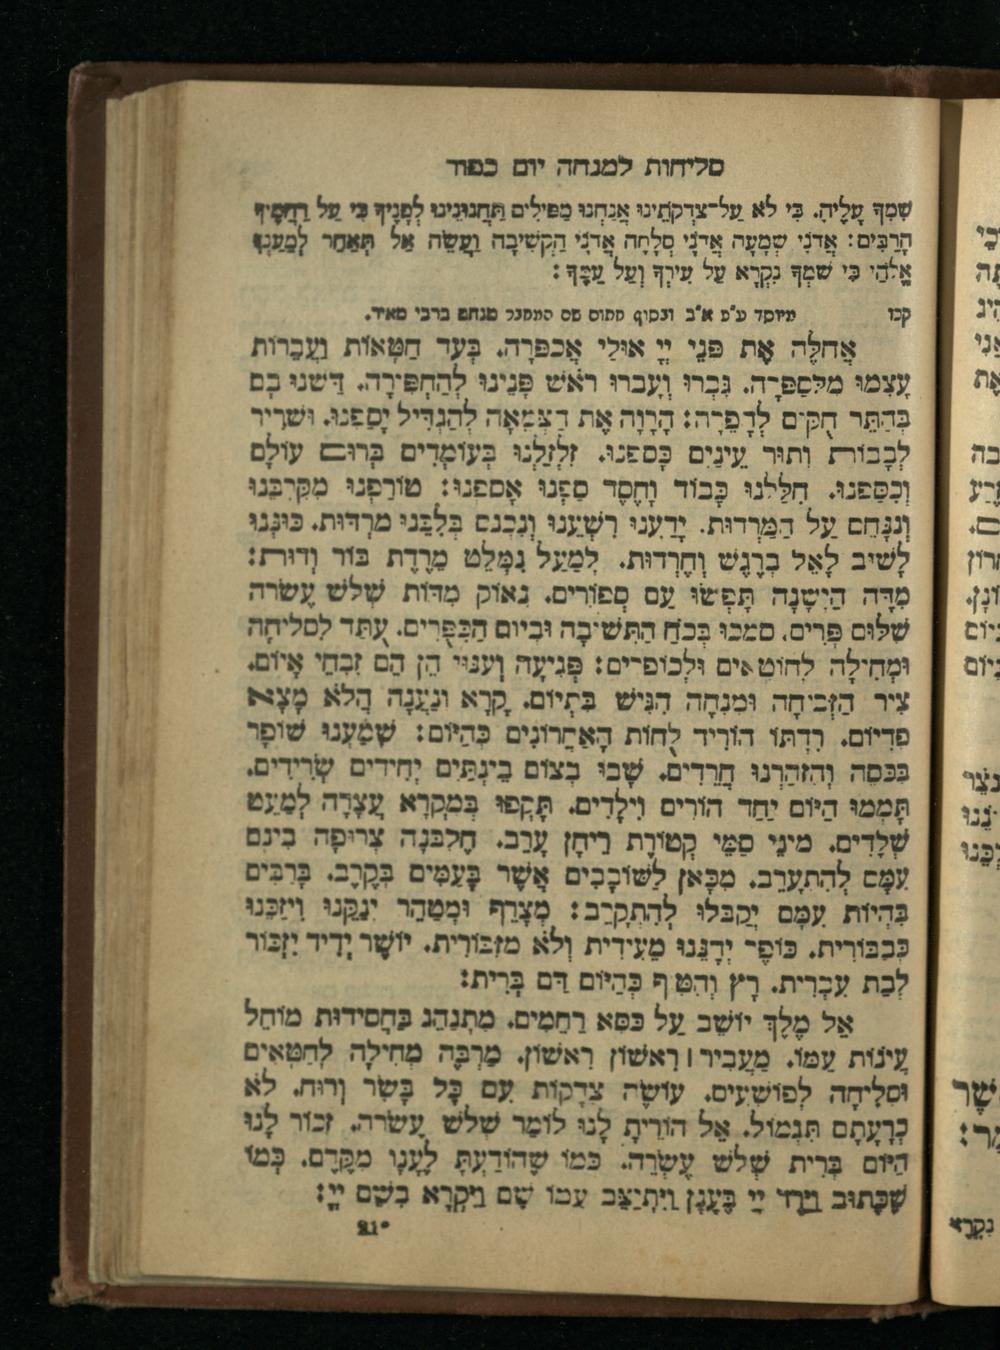 סליחות למנחה יום כפור
שִׁמְךָ עָלֶיהָ. כִּי לֹא עַל־צִדְקֹתֵינוּ אֲנַחְנוּ מַפִּילִים תַּחֲנוּנֵינוּ לְפָנֶיךָ כִּי עַל רַחֲמֶיךָ
הָרַבִּים: אֲדֹנָי שְׁמָעָה אֲדֹנָי סְלָחָה אֲדֹנָי הַקְשִׁיבָה וַעֲשֵׂה אַל תְּאַחַר לְמַעַנְךָ
אֱלֹהַי כִּי שִׁמְךָ נִקְרָא עַל עִירְךָ וְעַל עַמֶּךָ:
קכז מיוסד ע״פ א״ב ובסוף חתום שם המחבר מנחם ברבי מאיר.
אֲחַלֶּה אֶת פְּנֵי יְיָ אוּלַי אֲכַפְּרָה. בְּעַד חַטָּאוֹת וַעֲבֵרוֹת
עָצְמוּ מִלְּסַפְּרָה. גָּבְרוּ וְעָבְרוּ רֹאשׁ פָּנֵינוּ לְהַחְפִּירָה. דַּשְׁנוּ בָם
בְּהַתֵּר חֻקִּים לְהָפֵרָה: הָרָוָה אֶת הַצְּמֵאָה לְהַגְדִּיל יָסַפְנוּ. וּשְׁרִיר
לְבָבוֹת וְתוּר עֵינַיִם כָּסַפְנוּ. זִלְזַלְנוּ בְּעוֹמְדִים בְּרוּם עוֹלָם
וְכִסַּפְנוּ. חִלַּלְנוּ כָּבוֹד וָחֶסֶד סַפְנוּ אָסַפְנוּ: טוֹרַפְנוּ מִקִּרְבֵּנוּ
וְנִנָּחֵם עַל הַמַּרְדּוּת. יָדַעְנוּ רִשְׁעֵנוּ וְנִכְנַם בְּלִבֵּנוּ מַרְדּוּת. כּוֹנֵנוּ
לָשׁוּב לָאֵל בְּרֶגֶשׁ וַחֲרָדוּת. לְמַעַל נִמָּלֵט מֵרֶדֶת בּוֹר וְדוּת:
מִדָּה הַיְשָׁנָה תָּפַשׂוּ עַם סְפוּרִים. נְאוֹק מִדּוֹת שְׁלֹשׁ עֶשְׂרֵה
שִׁלּוּם פָּרִים. סמכוּ בְּכֹחַ הַתְּשׁוּבָה וּבְיוֹם הַכִּפֻּרִים. עֻתַּד לִסְלִיחָה
וּמְחִילָה לְחוֹטְאִים וּלְכוֹפְרִים: פְּגִיעָה וְעִנּוּי הֵן הֵם זִבְחֵי אָיוֹם.
צִיר הַזְּבִיחָה וּמִנְחָה הִגִּישׁ בְּתָיוֹם. קָרָא וְנַעֲנָה הֲלֹא מָצָא
פִדְיוֹם. רִדְתּוֹ הוֹרִיד לֻחוֹת הָאַחֲרוֹנִים כְּהַיּוֹם: שָׁמַעְנוּ שׁוֹפָר
בַּכֶּסֶה וְהִזְהַרְנוּ חֲרֵדִים. שָׁבוּ בְצוֹם בֵּינְתַיִם יְחִידִים שְׂרִידִים.
תָּמְמוּ הַיּוֹם יַחַד הוֹרִים וִילָדִים. תָּקְפוּ בְּמִקְרָא עֲצָרָה לְמַעֵט
שְׁלָדִים. מִינֵי סַמֵּי קְטוֹרֶת רֵיחָן עָרַב. חֶלְבְּנָה צְרוּפָה בֵּינָם
עִמָּם לְהִתְעָרֵב. מִכָּאן לַשּׁוֹכְבִים אֲשֶׁר בָּעַמִּים בְּקֶרֶב. בָּרַבִּים
בִּהְיוֹת עִמָּם יְקַבְּלוּ לְהִתְקָרֵב: מְצָרֵף וּמְטַהֵר יְנַקֵּנוּ וִיזַכֵּנוּ
כְּבַבּוֹרִית. כּוֹפֵר יְדָנֵּנוּ מֵעִידִית וְלֹא מִזִּבּוֹרִית. יוֹשֶׁר יְדִיד יִזְכּוֹר
לְבַת עִבְרִית. רָץ וְהִטִּיף כְּהַיּוֹם דַּם בְּרִית:
אֵל מֶלֶךְ יוֹשֵׁב עַל כִּסֵּא רַחֲמִים. מִתְנַהֵג בַּחֲסִידוּת מוֹחֵל
עֲוֹנוֹת עַמּוֹ. מַעֲבִיר רִאשׁוֹן רִאשׁוֹן. מַרְבֶּה מְחִילָה לְחַטָּאִים
וּסְלִיחָה לְפוֹשְׁעִים. עוֹשֶׂה צְדָקוֹת עִם כָּל בָּשָׂר וְרוּחַ. לֹא
כְרָעָתָם תִּגְמוֹל. אֵל הוֹרֵיתָ לָּנוּ לוֹמַר שְׁלֹשׁ עֶשְׂרֵה. זְכוֹר לָנוּ
הַיּוֹם בְּרִית שְׁלֹשׁ עֶשְׂרֵה. כְּמוֹ שֶׁהוֹדַעְתָּ לֶעָנָו מִקֶּדֶם. כְּמוֹ
שֶׁכָּתוּב וַיֵּרֶד יְיָ בֶּעָנָן וַיִּתְיַצֵּב עִמּוֹ שָׁם וַיִּקְרָא בְשֵׁם יְיָ:
21*